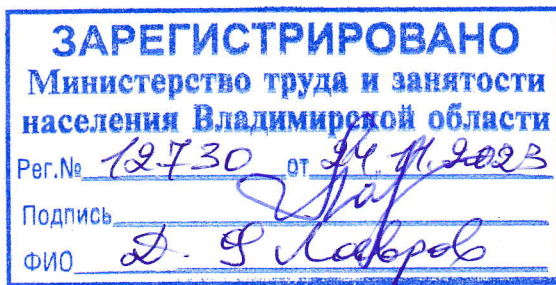 ЗАРЕГИСТРИРОВАНО
Министерство труда и занятости
населения Владимирской области
Рег.№ 12730 от 24.11.2023
Подпись
ФИО Д. Лавров